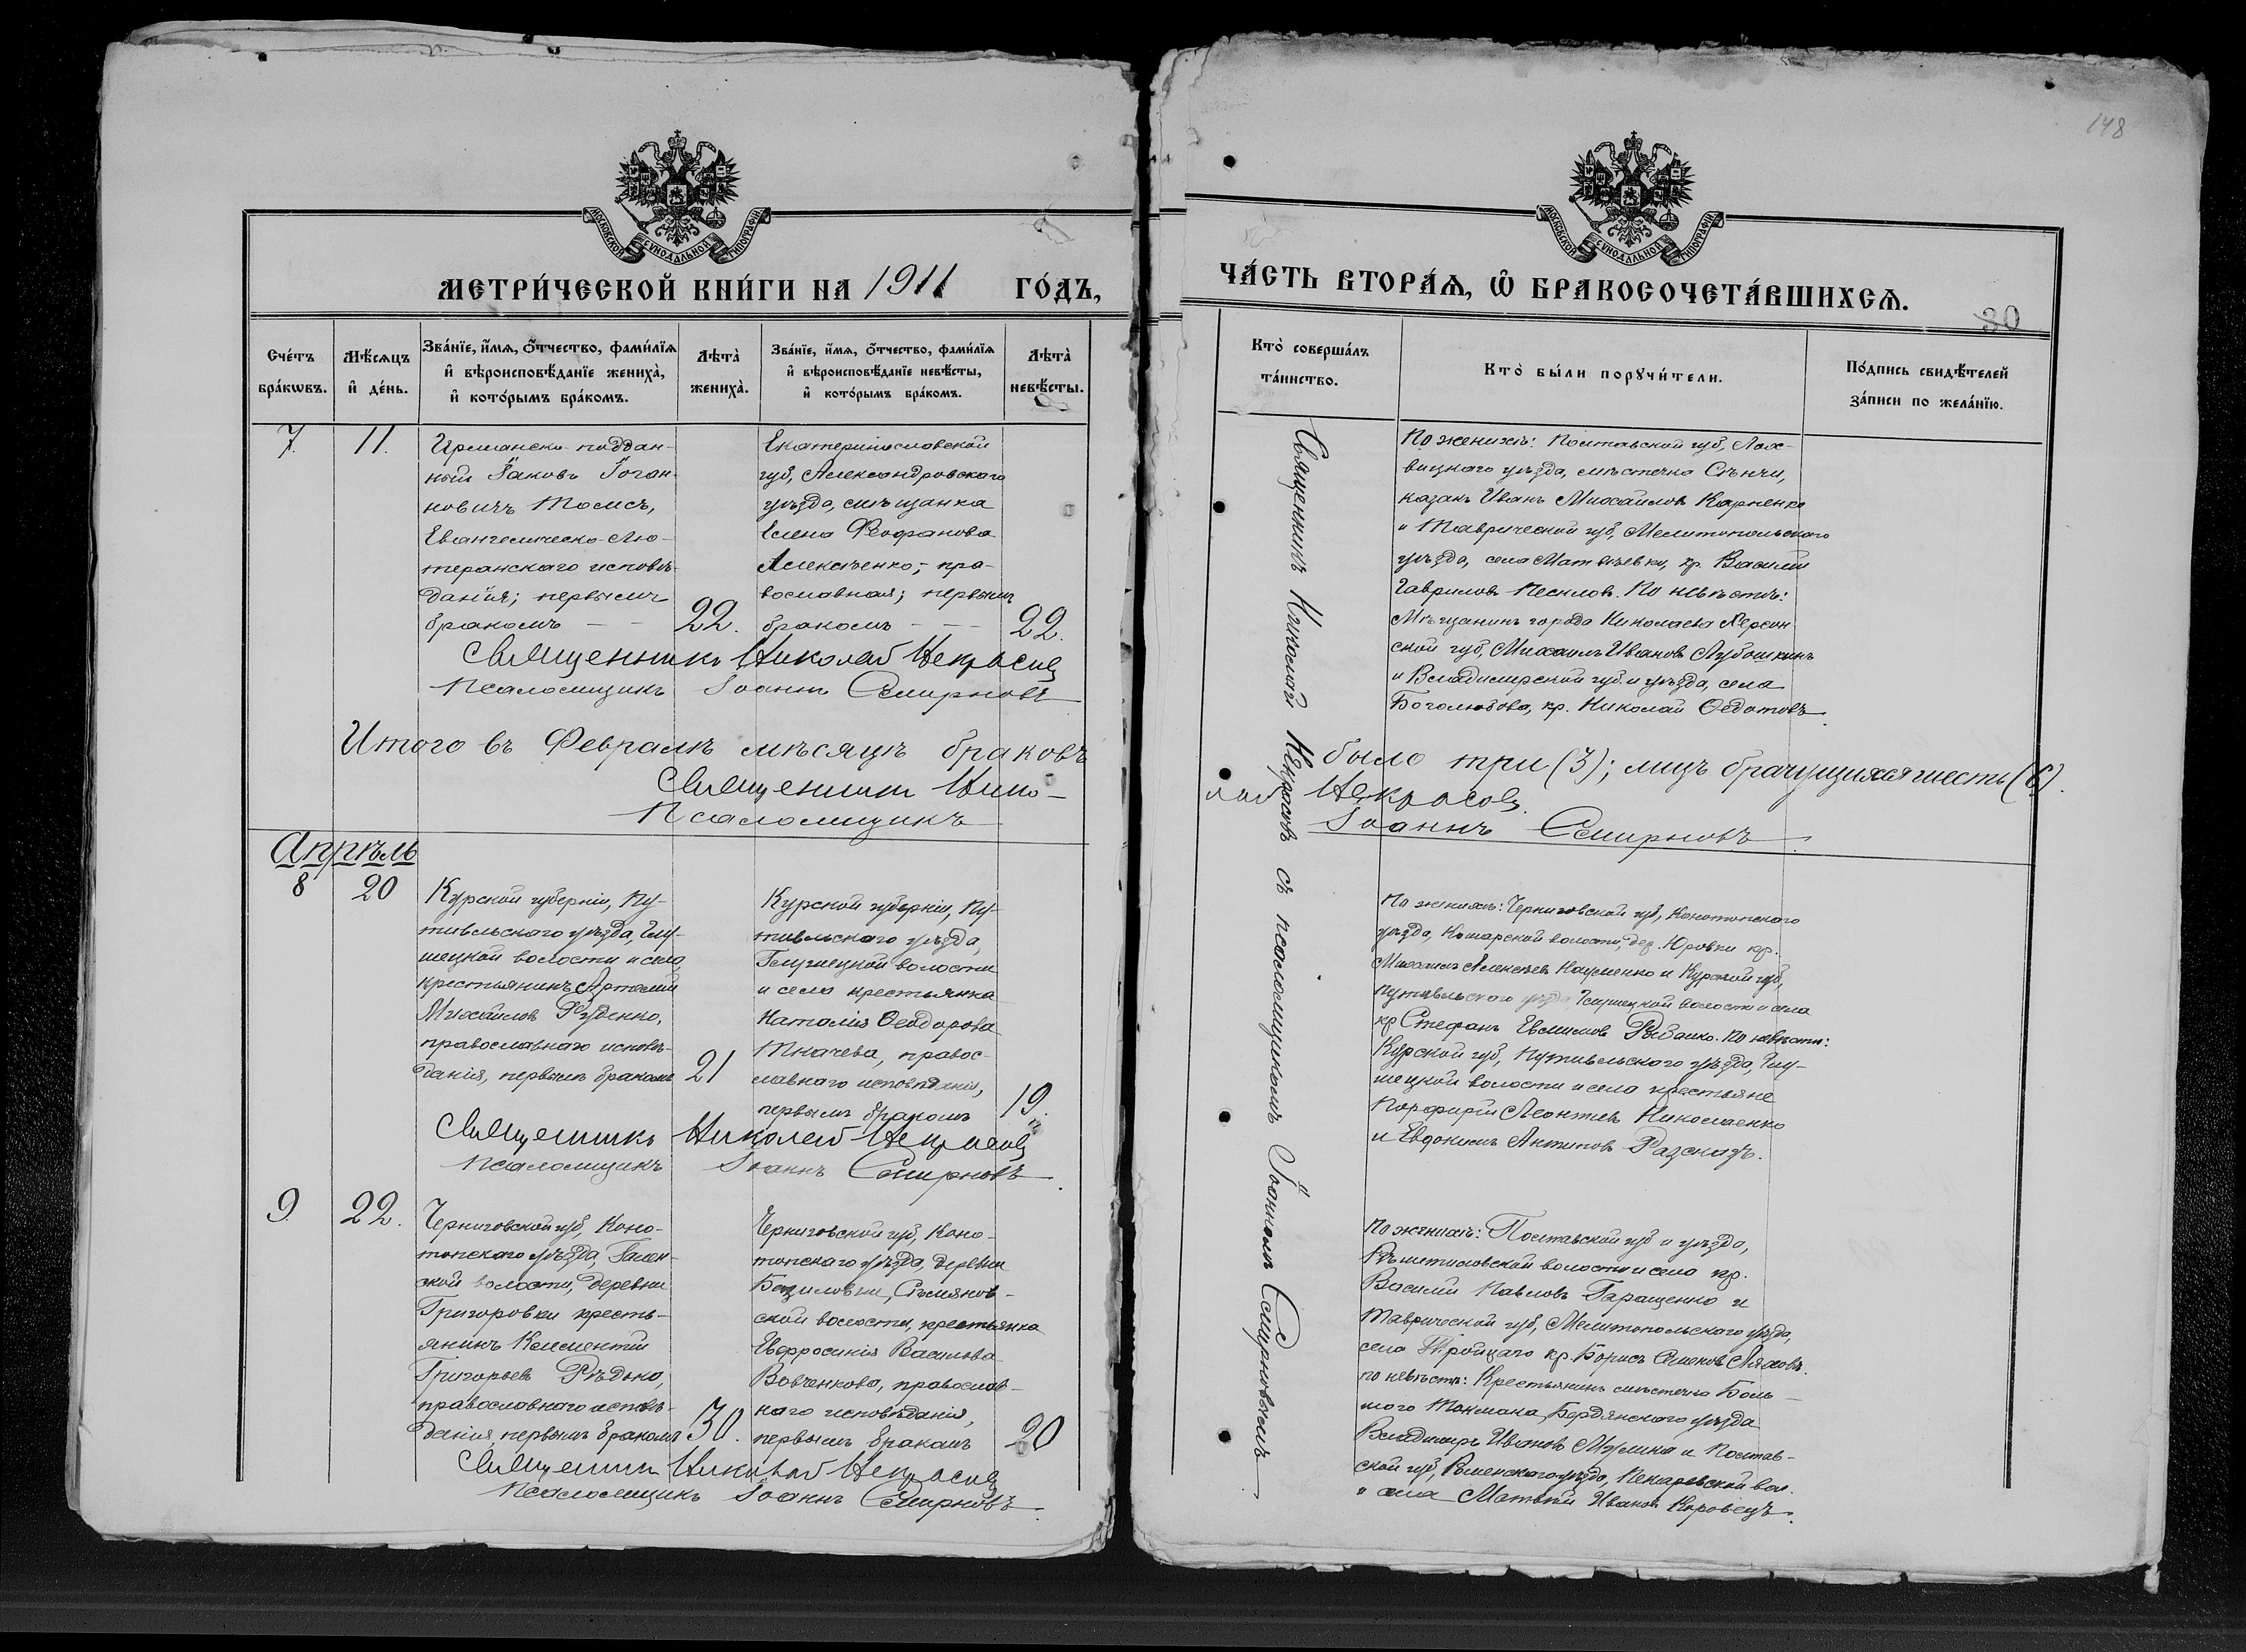 МОСКОВСКОЙ СѴНОДАЛЬНОЙ ТИПОГРАФІИ
МЕТРИ́ЧЕСКОЙ КНИ́ГИ НА 1911 ГО́ДЪ,
Сче́тъ бра́кѡвъ.
Мѣ́сяцъ и҆ де́нь.
Зва́нїе, и҆́мѧ, ѻ҆́тчество, фами́лїѧ и҆ вѣроисповѣ́данїе жениха̀, и҆ кото́рымъ бра́комъ.
Лѣ́та̀ жениха̀.
Зва́нїе, и҆́мѧ, ѻ҆́тчество, фами́лїѧ и҆ вѣроисповѣ́данїе невѣ́сты, и҆ кото́рымъ бра́комъ.
Лѣ́та̀ невѣ́сты.
7.
11.
Германско-поддан-
ный Іаковъ Іоган-
новичъ Томсъ,
Евангелическо-Лю-
теранскаго исповѣ-
данія; первымъ
бракомъ
22.
Екатеринославской
губ., Александровскаго
уѣзда, мѣщанка
Елена Феофанова
Алексѣенко; пра-
вославная; первымъ
бракомъ
22.
Священникъ Николай Некрасовъ
Псаломщикъ Іоаннъ Смирновъ
Итого въ Февралѣ мѣсяцѣ браковъ
Священникъ Нико-
Псаломщикъ
Апрѣль
8
20
Курской губерніи, Пу-
тивльскаго уѣзда, Глу-
шецкой волости и села,
крестьянинъ Артемій
Михайловъ Руденко,
православнаго исповѣ-
данія, первымъ бракомъ
21
Курской губерніи, Пу-
тивльскаго уѣзда,
Глушецкой волости
и села крестьянка
Наталія Ѳеодорова
Ткачева, правос-
лавнаго исповѣданія,
первымъ бракомъ
19.
Священникъ Николай Некрасовъ
Псаломщикъ Іоаннъ Смирновъ.
9
22.
Черниговской губ., Коно-
топскаго уѣзда, Гален-
ской волости, деревни
Григоровки кресть-
янинъ Климентій
Григорьевъ Рѣдько,
православнаго исповѣ-
данія, первымъ бракомъ
30.
Черниговской губ., Коно-
топскаго уѣзда, деревни
Базиловки, Сѣмянов-
ской волости, крестьянка
Евфросинія Васильева
Вовченкова, православ-
наго исповѣданія,
первымъ бракомъ
20
Священникъ Николай Некрасовъ
Псаломщикъ Іоаннъ Смирновъ.
148
МОСКОВСКОЙ СѴНОДАЛЬНОЙ ТИПОГРАФІИ
ЧА́СТЬ ВТОРА́Ѧ, Ѽ БРАКОСОЧЕТА́ВШИХСѦ.
30
Кто̀ соверша́лъ та́инство.
Кто̀ бы́ли порꙋчи́тели.
По́дпись свидѣ́телей за́писи по жела́нїю.
Священникъ Николай Некрасовъ съ псаломщикомъ Іоанномъ Смирновымъ
По женихѣ: Полтавской губ., Лох-
вицкаго уѣзда, мѣстечка Сѣнчи,
казакъ Иванъ Михайловъ Карпенко
и Таврической губ., Мелитопольскаго
уѣзда, села Матвѣевки, кр. Василій
Гавриловъ Песковъ. По невѣстѣ:
Мѣщанинъ города Николаева Херсон-
ской губ., Михаилъ Ивановъ Лубошкинъ
и Владимирской губ. и уѣзда, села
Боголюбова, кр. Николай Ѳедотовъ.
было три (3); лицъ брачущихся шесть (6).
лай Некрасовъ.
Іоаннъ Смирновъ.
По женихѣ: Черниговской губ., Конотопскаго
уѣзда, Кошарской волости, дер. Юровки кр.
Михаилъ Алексѣевъ Науменко и Курской губ.,
Путивльскаго уѣзда Глушецкой волости и села
кр. Стефанъ Евѳимовъ Рябаико. По невѣстѣ:
Курской губ., Путивльскаго уѣзда, Глу-
шецкой волости и села крестьяне
Порфирій Леонтьевъ Николаенко
и Евдокимъ Антиповъ Разсказъ.
По женихѣ: Полтавской губ. и уѣзда,
Рѣшетиловской волости и села кр.
Василій Павловъ Геращенко и
Таврической губ., Мелитопольскаго уѣзда,
села Троицкаго кр. Борисъ Семеновъ Ляховъ.
по невѣстѣ: Крестьянинъ мѣстечка Боль-
шого Токмака, Бердянскаго уѣзда
Владимиръ Ивановъ и Полтав-
ской губ., Роменскаго уѣзда, Пекаревской вол.
и села Матвѣй Ивановъ Коровецъ.